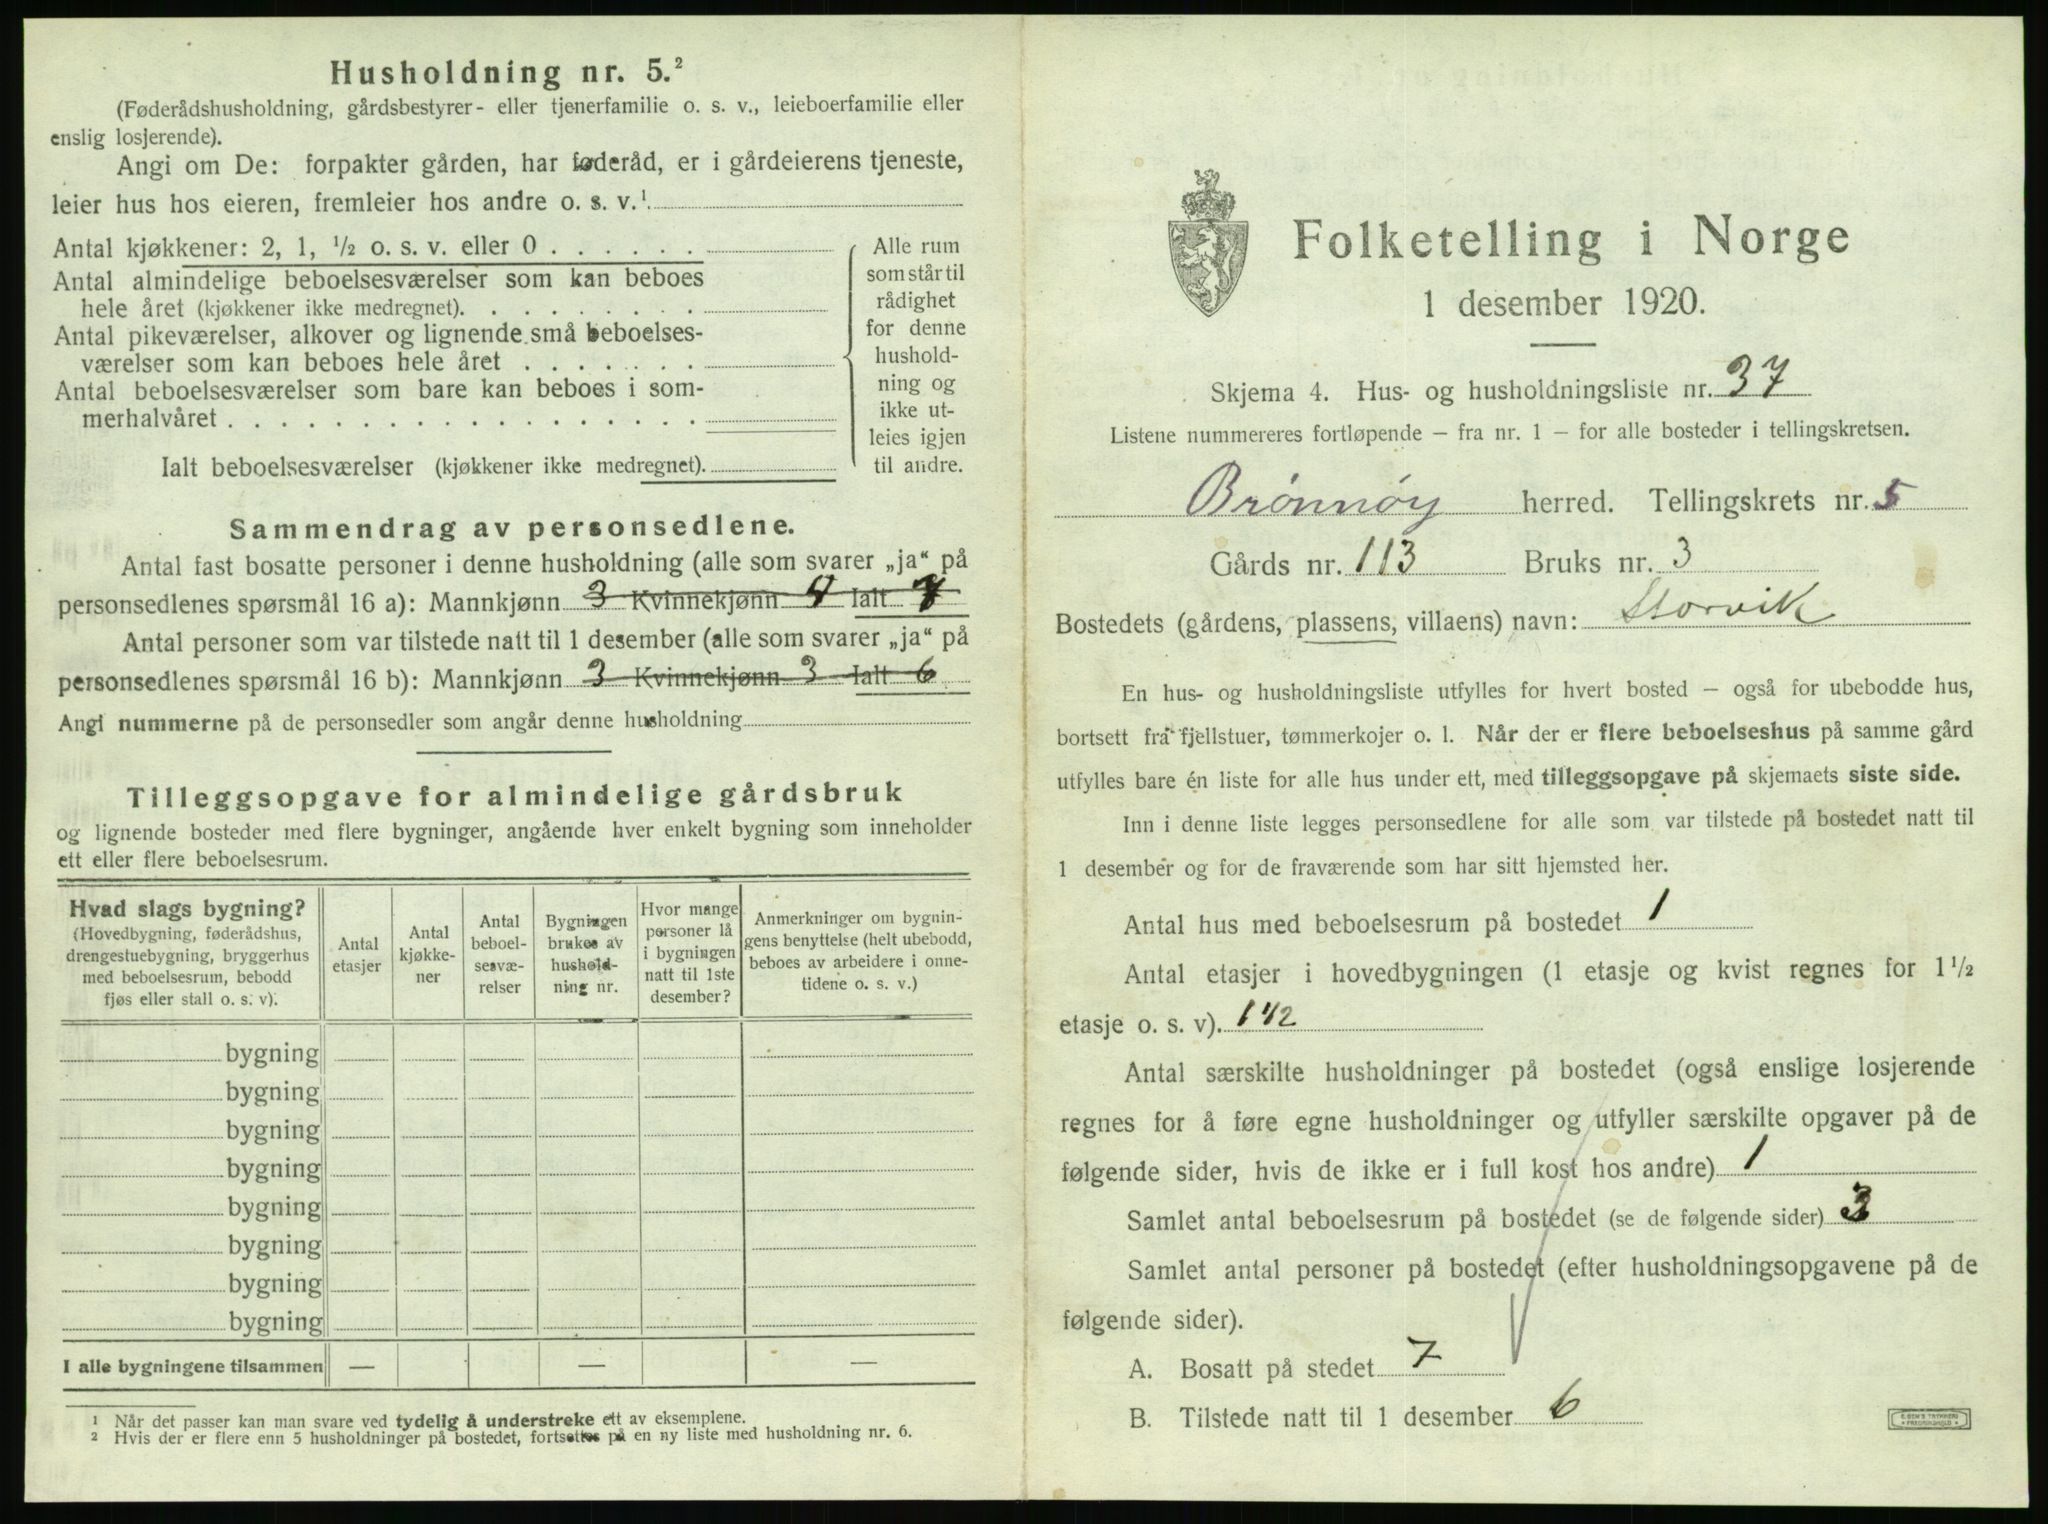 Husholdning nr. 5.²
(Føderådshusholdning, gårdsbestyrer- eller tjenerfamilie o. s. v., leieboerfamilie eller
enslig losjerende).
Angi om De: forpakter gården, har føderåd, er i gårdeierens tjeneste,
leier hus hos eieren, fremleier hos andre o. s. v.¹
Antal kjøkkener: 2, 1, ½ o. s. v. eller 0
Antal almindelige beboelsesværelser som kan beboes
hele året (kjøkkener ikke medregnet).
Antal pikeværelser, alkover og lignende små beboelses-
værelser som kan beboes hele året
Antal beboelsesværelser som bare kan beboes i som-
merhalvåret
Ialt beboelsesværelser (kjøkkener ikke medregnet).
Alle rum
som står til
rådighet
for denne
hushold-
ning og
ikke ut-
leies igjen
til andre.
Sammendrag av personsedlene.
Antal fast bosatte personer i denne husholdning (alle som svarer „ja“ på
personsedlenes spørsmål 16 a): Mannkjønn 3 Kvinnekjønn 4 Ialt 7
Antal personer som var tilstede natt til 1 desember (alle som svarer „ja“ på
personsedlenes spørsmål 16 b): Mannkjønn 3 Kvinnekjønn 3 Ialt 6
Angi nummerne på de personsedler som angår denne husholdning
Tilleggsopgave for almindelige gårdsbruk
og lignende bosteder med flere bygninger, angående hver enkelt bygning som inneholder
ett eller flere beboelsesrum.
Hvad slags bygning?
(Hovedbygning, føderådshus,
drengestuebygning, bryggerhus
med beboelsesrum, bebodd
fjøs eller stall o. s. v).
Antal
etasjer
Antal
kjøkke-
ner
Antal
beboel-
sesvæ-
relser
Bygningen
brukes av
hushold-
ning nr.
Hvor mange
personer lå
i bygningen
natt til 1ste
desember?
Anmerkninger om bygnin-
gens benyttelse (helt ubebodd,
beboes av arbeidere i onne-
tidene o. s. v.)
bygning
bygning
bygning
bygning
bygning
bygning
bygning
bygning
I alle bygningene tilsammen — — —
¹ Når det passer kan man svare ved tydelig å understreke ett av eksemplene.
² Hvis der er flere enn 5 husholdninger på bostedet, fortsettes på en ny liste med husholdning nr. 6.
Folketelling i Norge
1 desember 1920.
Skjema 4. Hus- og husholdningsliste nr. 37
Listene nummereres fortløpende – fra nr. 1 – for alle bosteder i tellingskretsen.
Brønnøy herred. Tellingskrets nr. 5
Gårds nr. 113 Bruks nr. 3
Bostedets (gårdens, plassens, villaens) navn: Storvik
En hus- og husholdningsliste utfylles for hvert bosted – også for ubebodde hus,
bortsett fra fjellstuer, tømmerkojer o. l. Når der er flere beboelseshus på samme gård
utfylles bare én liste for alle hus under ett, med tilleggsopgave på skjemaets siste side.
Inn i denne liste legges personsedlene for alle som var tilstede på bostedet natt til
1 desember og for de fraværende som har sitt hjemsted her.
Antal hus med beboelsesrum på bostedet 1
Antal etasjer i hovedbygningen (1 etasje og kvist regnes for 1½
etasje o. s. v). 1 1/2
Antal særskilte husholdninger på bostedet (også enslige losjerende
regnes for å føre egne husholdninger og utfyller særskilte opgaver på de
følgende sider, hvis de ikke er i full kost hos andre) 1
Samlet antal beboelsesrum på bostedet (se de følgende sider) 3
Samlet antal personer på bostedet (efter husholdningsopgavene på de
følgende sider).
A. Bosatt på stedet 7
B. Tilstede natt til 1 desember 6